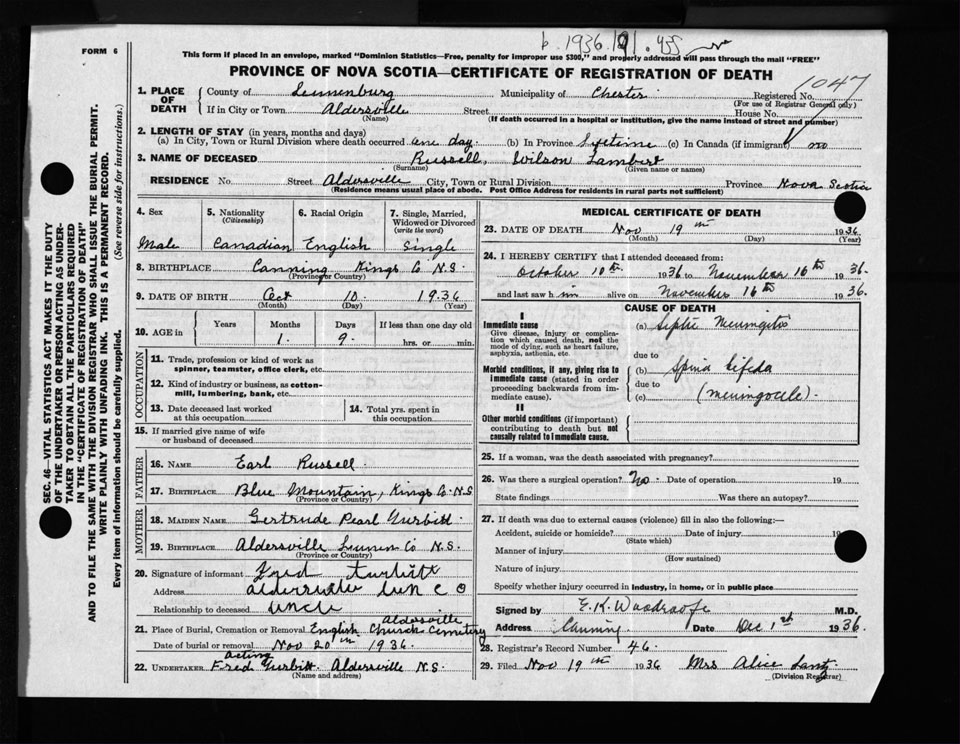 b. 1936. 191. 455
FORM 6
This form if placed in an envelope, marked "Dominion Statistics—Free, penalty for improper use $300," and properly addressed will pass through the mail "FREE"
PROVINCE OF NOVA SCOTIA—CERTIFICATE OF REGISTRATION OF DEATH
1047
1. PLACE OF DEATH County of Lunenburg Municipality of Chester Registered No.
(For use of Registrar General only)
If in City or Town Aldersville Street House No.
(Name) (If death occurred in a hospital or institution, give the name instead of street and number)
2. LENGTH OF STAY (in years, months and days)
(a) In City, Town or Rural Division where death occurred one day. (b) In Province Lifetime (c) In Canada (if immigrant) no
3. NAME OF DECEASED Russell, Wilson Lambert
(Surname) (Given name or names)
RESIDENCE No. Street Aldersville City, Town or Rural Division Province Nova Scotia
(Residence means usual place of abode. Post Office Address for residents in rural parts not sufficient)
SEC. 46—VITAL STATISTICS ACT MAKES IT THE DUTY
OF THE UNDERTAKER OR PERSON ACTING AS UNDER-
TAKER TO OBTAIN ALL THE PARTICULARS REQUIRED
IN THE "CERTIFICATE OF REGISTRATION OF DEATH"
AND TO FILE THE SAME WITH THE DIVISION REGISTRAR WHO SHALL ISSUE THE BURIAL PERMIT.
WRITE PLAINLY WITH UNFADING INK. THIS IS A PERMANENT RECORD.
Every item of information should be carefully supplied. (See reverse side for instructions.)
4. Sex 5. Nationality (Citizenship) 6. Racial Origin 7. Single, Married, Widowed or Divorced (write the word)
Male Canadian English Single
8. BIRTHPLACE Canning Kings Co N.S.
(Province or Country)
9. DATE OF BIRTH Oct 10 1936
(Month) (Day) (Year)
10. AGE in Years Months Days If less than one day old
1. 9. hrs. or min.
OCCUPATION
11. Trade, profession or kind of work as spinner, teamster, office clerk, etc.
12. Kind of industry or business, as cotton-mill, lumbering, bank, etc.
13. Date deceased last worked at this occupation 14. Total yrs. spent in this occupation
15. If married give name of wife or husband of deceased
FATHER
16. NAME Earl Russell
17. BIRTHPLACE Blue Mountain, Kings Co. N.S
(Province or Country)
MOTHER
18. MAIDEN NAME Gertrude Pearl Turbitt
19. BIRTHPLACE Aldersville Lunen Co N.S.
(Province or Country)
20. Signature of informant Fred Turbitt
Address Aldersville Lun C O
Relationship to deceased Uncle
Aldersville
21. Place of Burial, Cremation or Removal English Church Cemetery
Date of burial or removal Nov 20th 1936.
acting
22. UNDERTAKER Fred Turbitt Aldersville N.S.
(Name and address)
MEDICAL CERTIFICATE OF DEATH
23. DATE OF DEATH Nov 19th 1936
(Month) (Day) (Year)
24. I HEREBY CERTIFY that I attended deceased from:
October 10th 1936 to November 16th 1936.
and last saw him alive on November 16th 1936.
CAUSE OF DEATH
I
Immediate cause (a) Septic Meningitis
Give disease, injury or complication which caused death, not the mode of dying, such as heart failure, asphyxia, asthenia, etc.
due to
Morbid conditions, if any, giving rise to immediate cause (stated in order proceeding backwards from immediate cause). (b) Spina bifida
due to
(c) (meningocele).
II
Other morbid conditions (if important) contributing to death but not causally related to immediate cause.
25. If a woman, was the death associated with pregnancy?
26. Was there a surgical operation? No. Date of operation 19
State findings Was there an autopsy?
27. If death was due to external causes (violence) fill in also the following:—
Accident, suicide or homicide? Date of injury 19
(State which)
Manner of injury
(How sustained)
Nature of injury
Specify whether injury occurred in industry, in home, or in public place
Signed by E. K. Woodroofe M.D.
Address Canning Date Dec 1st 1936.
28. Registrar's Record Number 46.
29. Filed Nov 19th 1936 Mrs Alice Lantz
(Division Registrar)